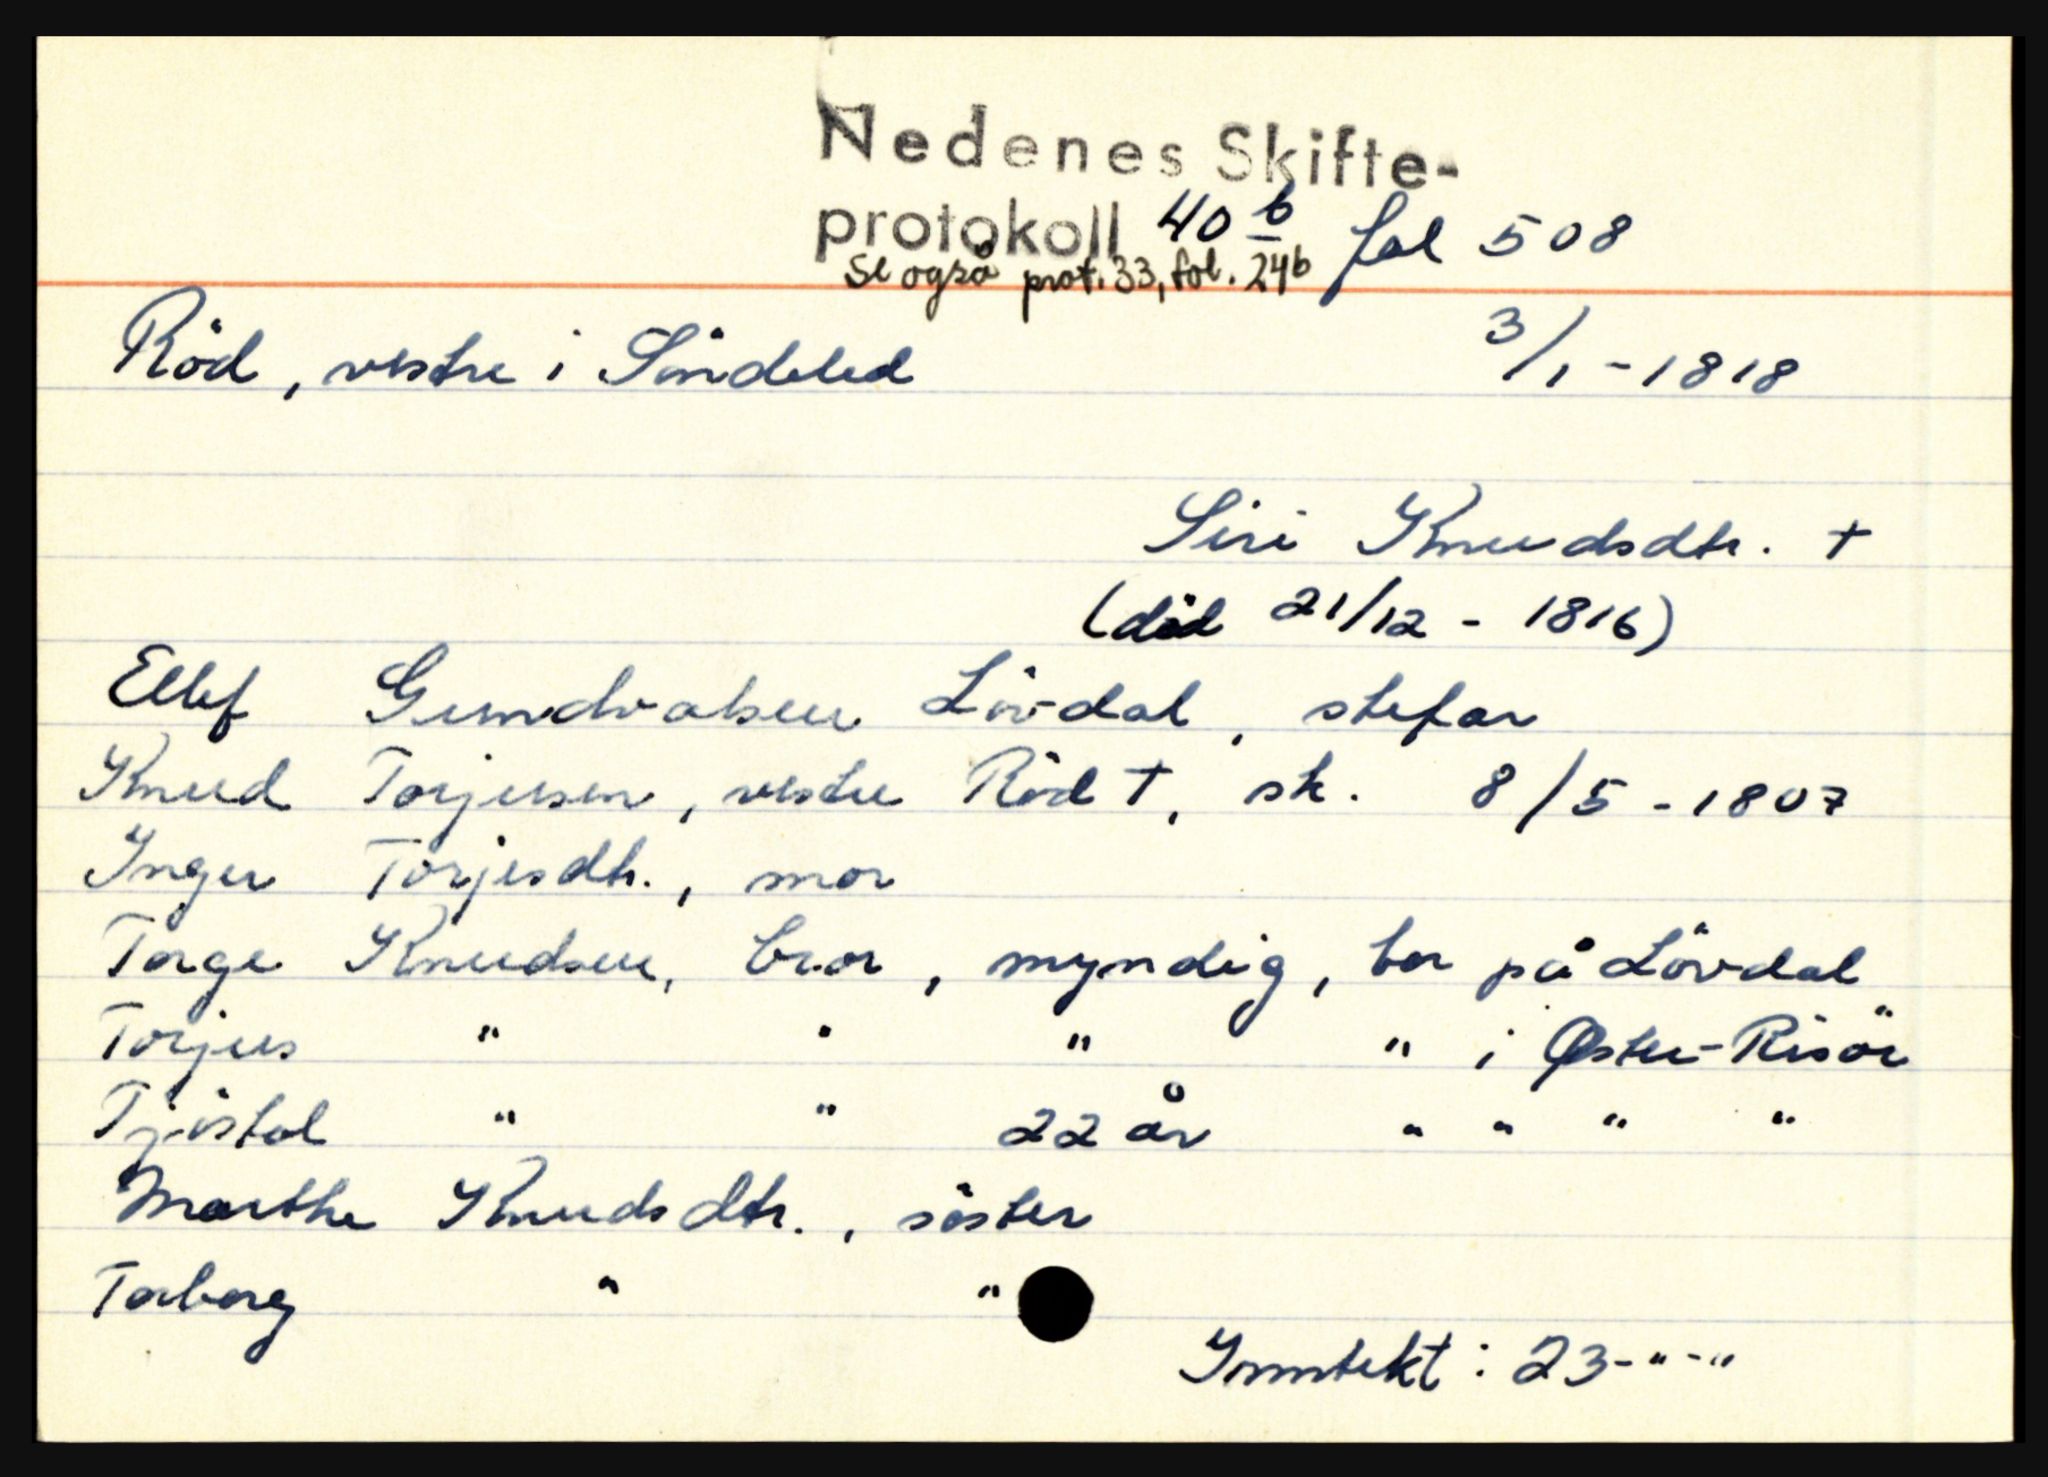 Nedenes Skifte-
protokoll 40 b fol 508
Se også prot. 33, fol. 246
Röd, vestre i Söndeled 3/1 - 1818
Siri Knudsdtr. +
(död 21/12 - 1816)
Ellef Gundvalsen Lövdal, stefar
Knud Torjusen, vestre Röd +, sk. 8/5 - 1807
Inger Torjesdtr., mor
Torge Knudsen, bror, myndig, bor på Lövdal
Torjus " " " " i Øster-Risör
Tjöstol " " 22 år " " " "
Marthe Knudsdtr., söster
Torborg " "
Inntekt: 23-"-"